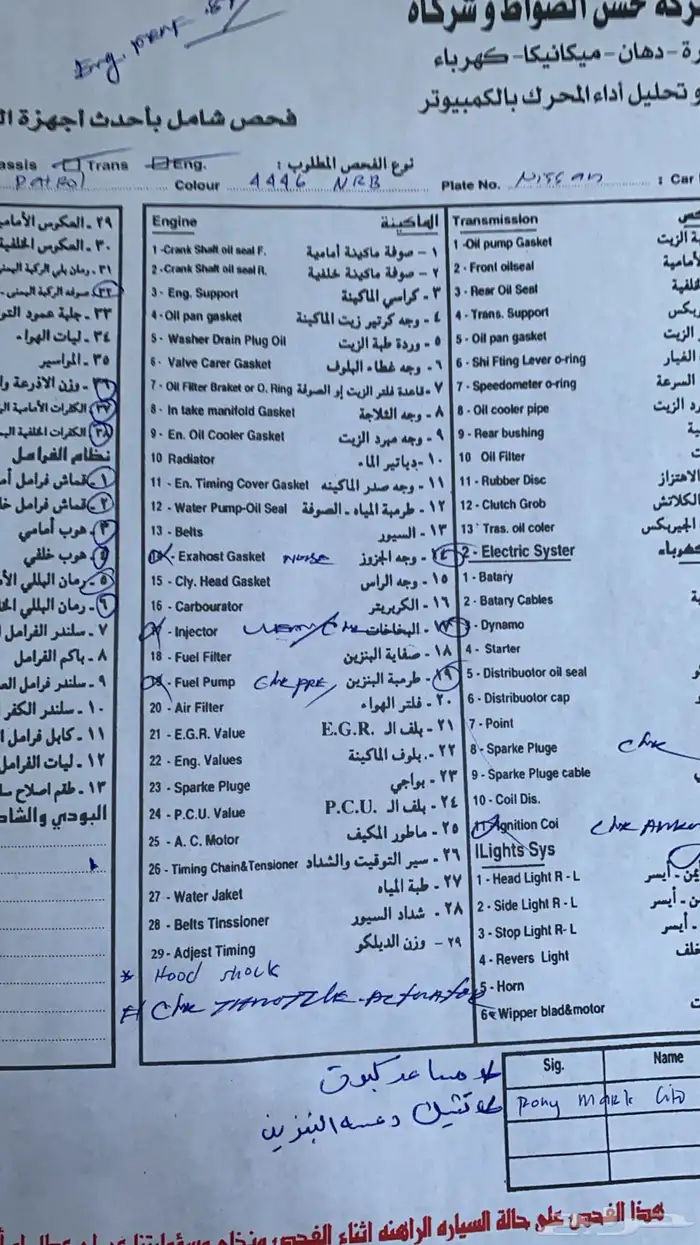 حسن الضواط و شركاه
دهان - ميكانيكا - كهرباء
و تحليل أداء المحرك بالكمبيوتر
فحص شامل بأحدث أجهزة
نوع الفحص المطلوب :
assis Trans Eng.
PATROL Colour 4446 NRB Plate No. NISSAN : Car
٢٩ - المكوس الأمامي
٣٠ - المكوس الخلفية
٣١ - رمان بلي الركبة اليمنى
٣٢ - صوفه الركبة اليمنى
٣٣ - جلبة عمود التو
٣٤ - ليات الهواء
٣٥ - المواسير
٣٦ - وزن الأذرعة وا
٣٧ - الكفرات الأمامية الي
٣٨ - الكفرات الخلفية اليم
نظام الفرامل
١ - قماش فرامل أم
٢ - قماش فرامل خل
٣ - هوب أمامي
٤ - هوب خلفي
٥ - رمان البللي الأم
٦ - رمان البللي الخل
٧ - سلندر الفرامل
٨ - باكم الفرامل
٩ - سلندر فرامل الع
١٠ - سلندر الكفر
١١ - كابل فرامل
١٢ - ليات الفرامل
١٣ - طقم اصلاح سل
البودي والشاص
Engine الماكينة
1 -Crank Shaft oil seal F. ١ - صوفة ماكينة أمامية
2 -Crank Shaft oil seal R. ٢ - صوفة ماكينة خلفية
3 - Eng. Support ٣ - كراسي الماكينة
4 - Oil pan gasket ٤ - وجه كرتير زيت الماكينة
5 - Washer Drain Plug Oil ٥ - وردة طبة الزيت
6 - Valve Carer Gasket ٦ - وجه غطاء البلوف
7 - Oil Filter Braket or O. Ring ٧ - قاعدة فلتر الزيت إو الصوفة
8 - In take manifold Gasket ٨ - وجه الثلاجة
9 - En. Oil Cooler Gasket ٩ - وجه مبرد الزيت
10 Radiator ١٠ - دياتير الماء
11 - En. Timing Cover Gasket ١١ - وجه صدر الماكينه
12 - Water Pump-Oil Seal ١٢ - طرمبة المياه - الصوفة
13 - Belts ١٣ - السيور
- Exahost Gasket NOISE ١٤ - وجه الجزوز
15 - Cly. Head Gasket ١٥ - وجه الراس
16 - Carbourator ١٦ - الكربريتر
- Injector ١٧ - البخاخات
18 - Fuel Filter ١٨ - صفاية البنزين
- Fuel Pump ١٩ - طرمبة البنزين
20 - Air Filter ٢٠ - فلتر الهواء
21 - E.G.R. Value ٢١ - بلف الـ E.G.R.
22 - Eng. Values ٢٢ - بلوف الماكينة
23 - Sparke Pluge ٢٣ - بواجي
24 - P.C.U. Value ٢٤ - بلف الـ P.C.U.
25 - A. C. Motor ٢٥ - ماطور المكيف
26 - Timing Chain&Tensioner ٢٦ - سير التوقيت والشداد
27 - Water Jaket ٢٧ - طبة المياه
28 - Belts Tinssioner ٢٨ - شداد السيور
29 - Adjest Timing ٢٩ - وزن الديلكو
* Hood shock
# Chk THROTTLE ACTUATOR
Transmission
1 -Oil pump Gasket
2 - Front oilseal
3 - Rear Oil Seal
4 - Trans. Support
5 - Oil pan gasket
6 - Shi Fting Lever o-ring
7 - Speedometer o-ring
8 - Oil cooler pipe
9 - Rear bushing
10 Oil Filter
11 - Rubber Disc
12 - Clutch Grob
13 Tras. oil coler
2 - Electric Syster
1 - Batary
2 - Batary Cables
3 - Dynamo
4 - Starter
5 - Distribuotor oil seal
6 - Distribuotor cap
7 - Point
8 - Sparke Pluge Chk
9 - Sparke Pluge cable
10 - Coil Dis.
11 - Ignition Coi Chk
ILights Sys
1 - Head Light R - L
2 - Side Light R - L
3 - Stop Light R - L
4 - Revers Light
5 - Horn
6 - Wipper blad&motor
مساعد كبوت
تشيك دعسه البنزين
Sig. Name
Rony Mark
هذا الفحص على حالة السياره الراهنه اثناء الفحص